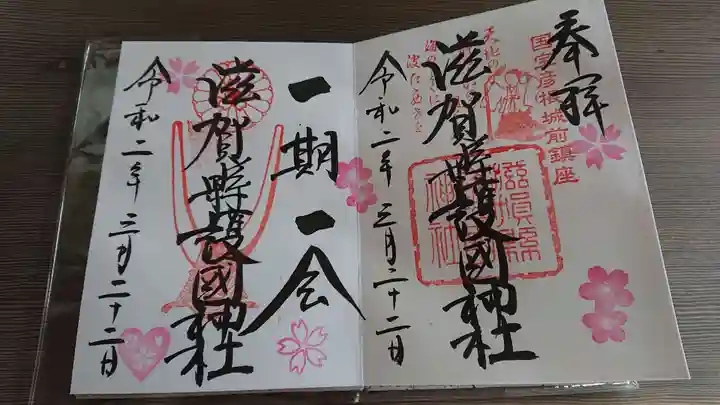 奉拝
国宝彦根城前鎮座
滋賀縣護國神社
令和二年三月二十二日
一期一会
滋賀縣護國神社
令和二年三月二十二日